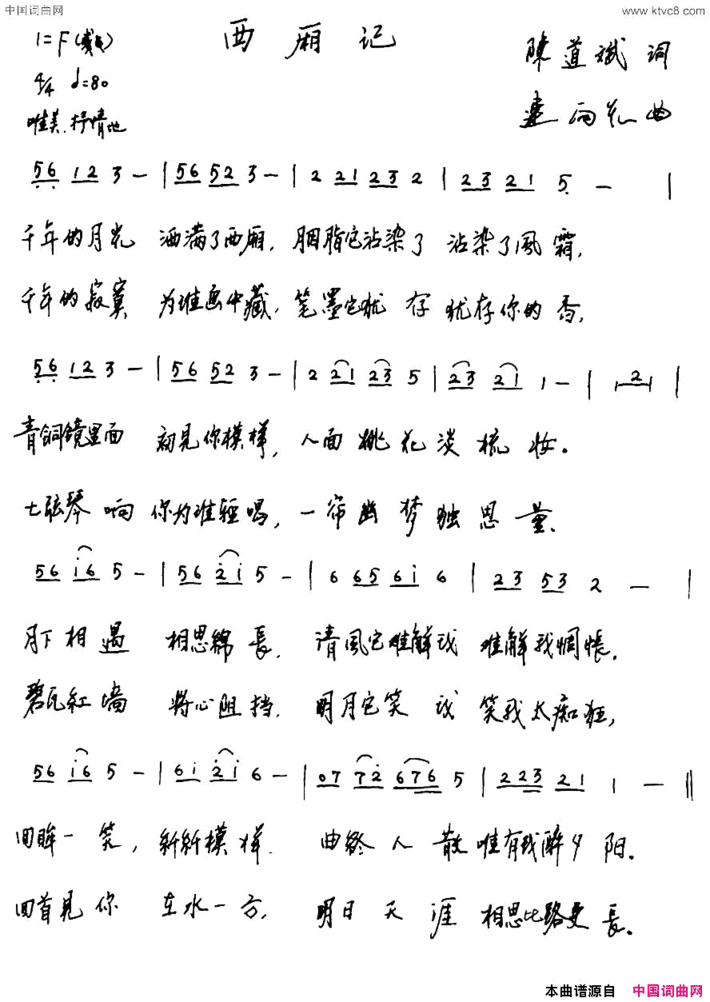 中国词曲网
www.ktvc8.com
西厢记
1=F
4/4 ♩=80
唯美.抒情地
陳道斌 词
曲
56 12 3 - | 56 52 3 - | 2 21 23 2 | 23 21 5 - |
千年的月光 洒满了西厢, 胭脂它沾染了 沾染了風霜,
千年的寂寞 为谁画中藏, 笔墨它犹存 犹存你的香,
56 12 3 - | 56 52 3 - | 2 21 23 5 | 23 21 1 - | 2 |
青铜镜里面 初见你模样, 人面桃花淡梳妆。
七弦琴响 你为谁轻唱, 一帘幽梦独思量、
56 i6 5 - | 56 2i 5 - | 6 65 6i 6 | 23 53 2 - |
月下相遇 相思綿長, 清風它难解我 难解我惆怅,
碧瓦紅墙 将心阻挡. 明月它笑我 笑我太痴狂,
56 i6 5 - | 6i 2i 6 - | 07 72 676 5 | 223 21 1 - ‖
回眸一笑, 新新模样. 曲終人散 唯有我醉夕阳。
回首見你 在水一方, 明日天涯 相思比路更長。
本曲谱源自 中国词曲网